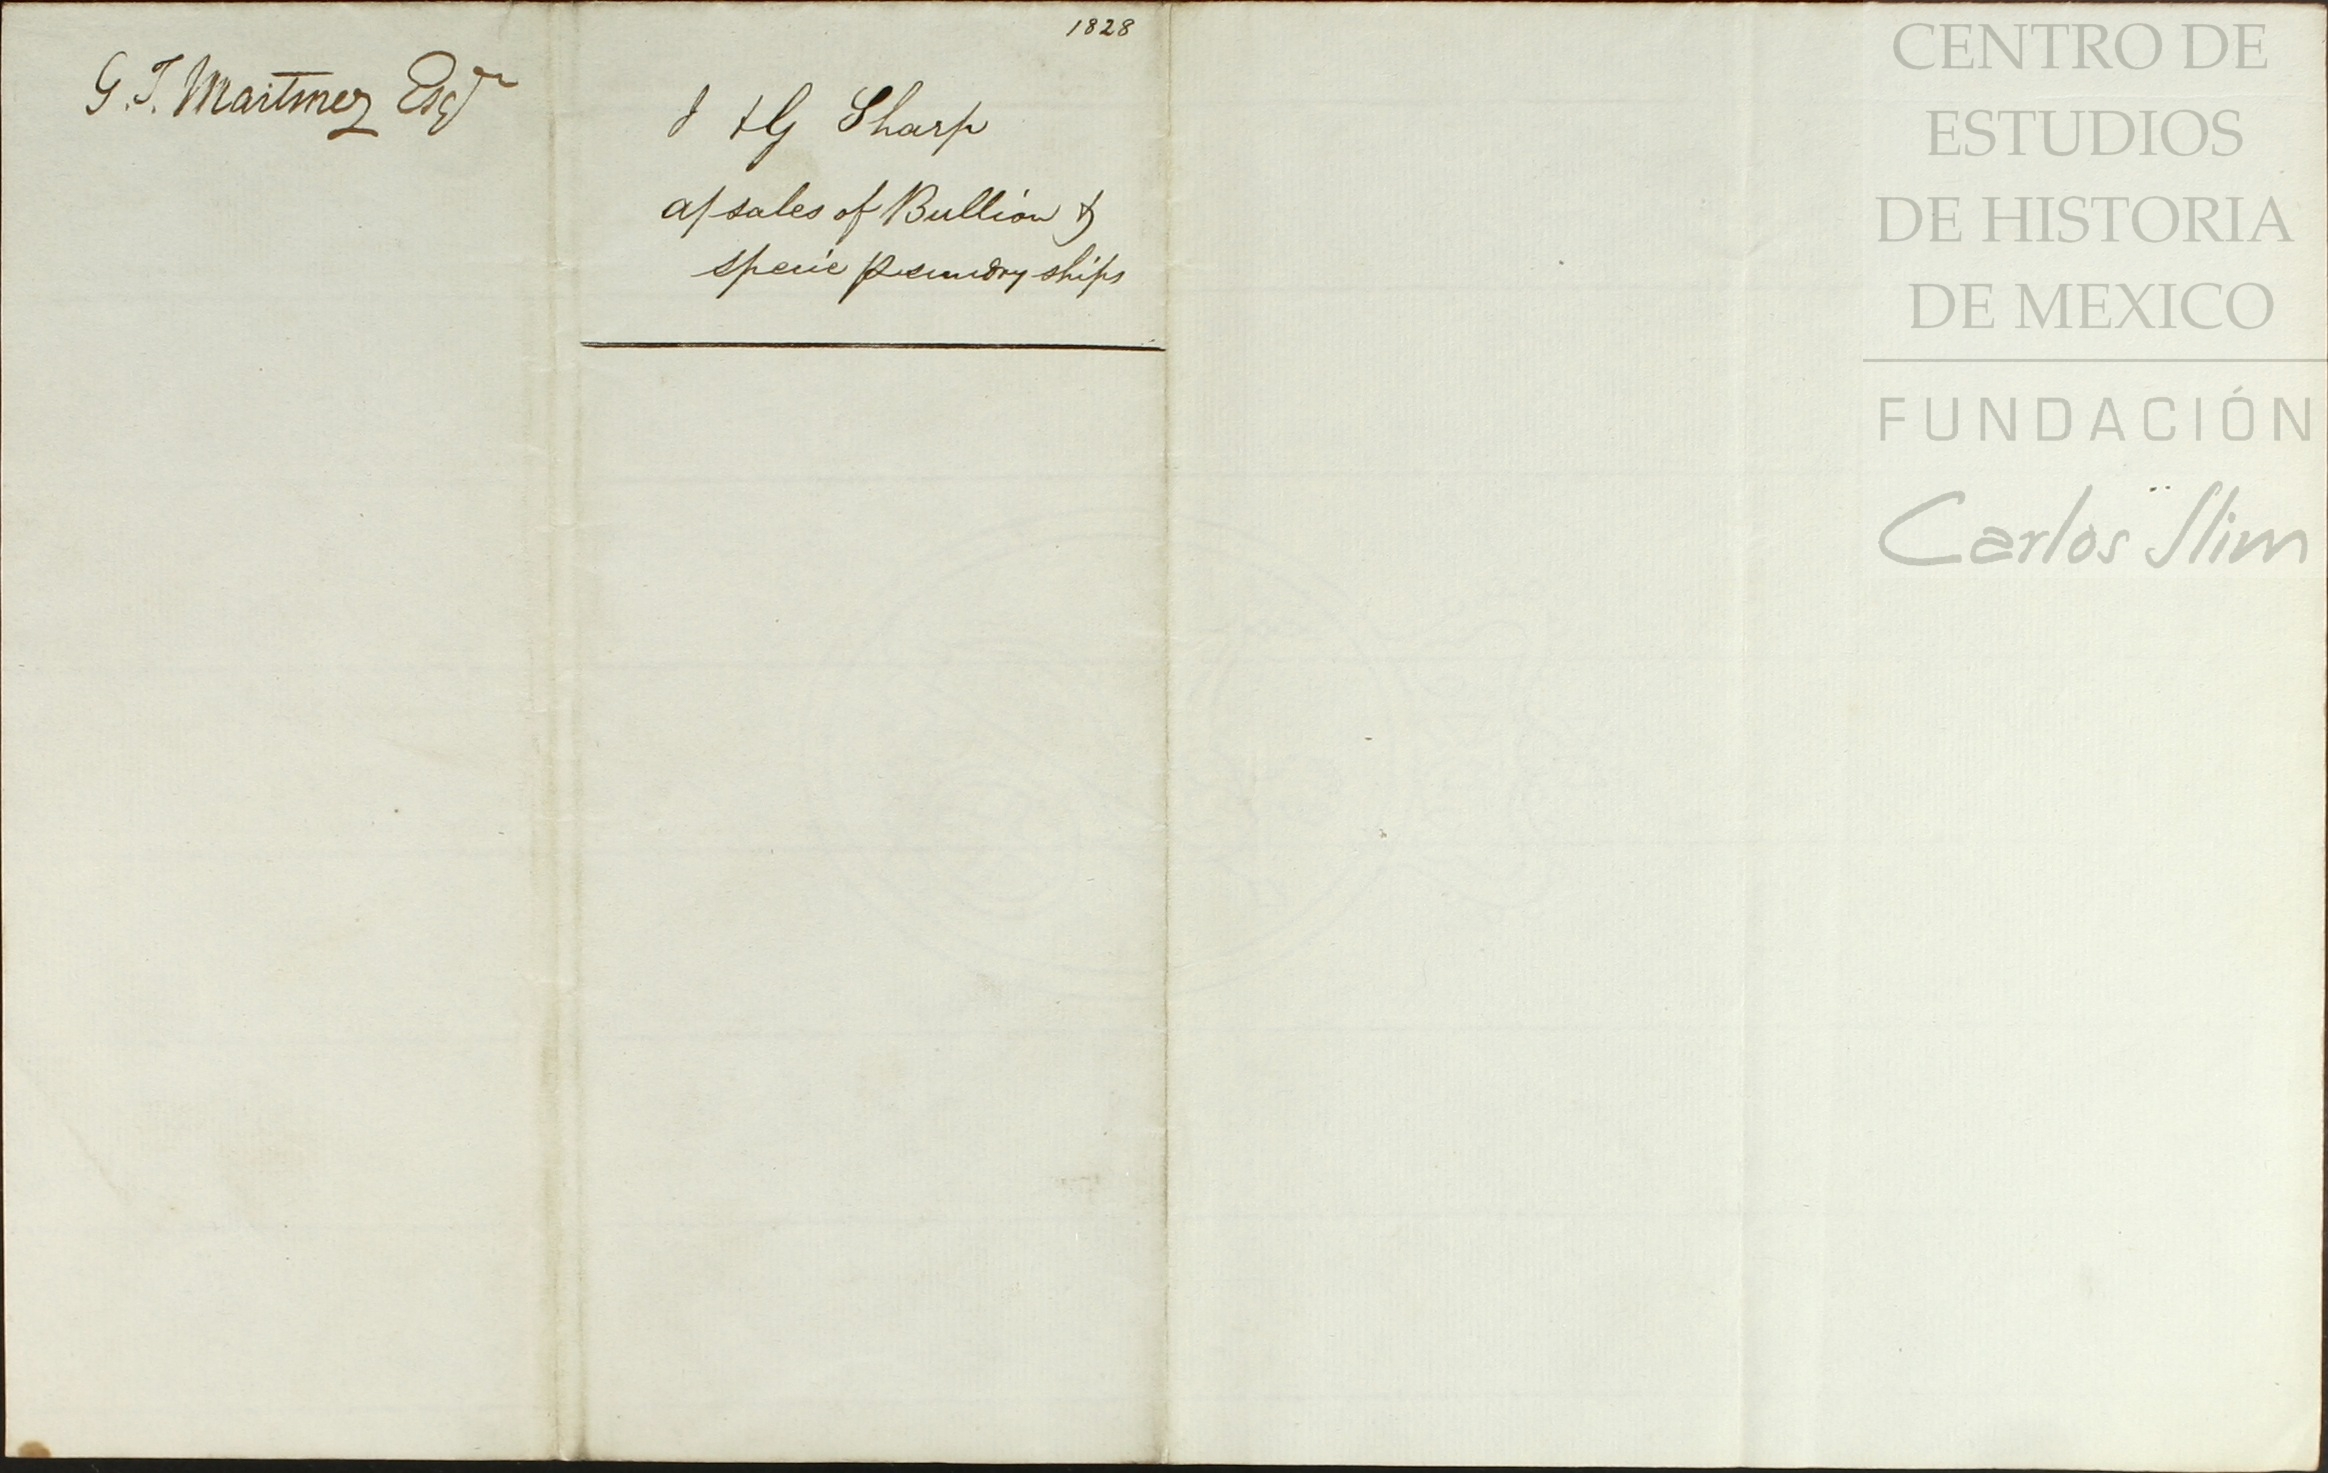 1828
G. T. Martinez Esqr
J & G Sharp
a/ sales of Bullion &
specie p sundry ships
CENTRO DE
ESTUDIOS
DE HISTORIA
DE MEXICO
FUNDACIÓN
Carlos Slim